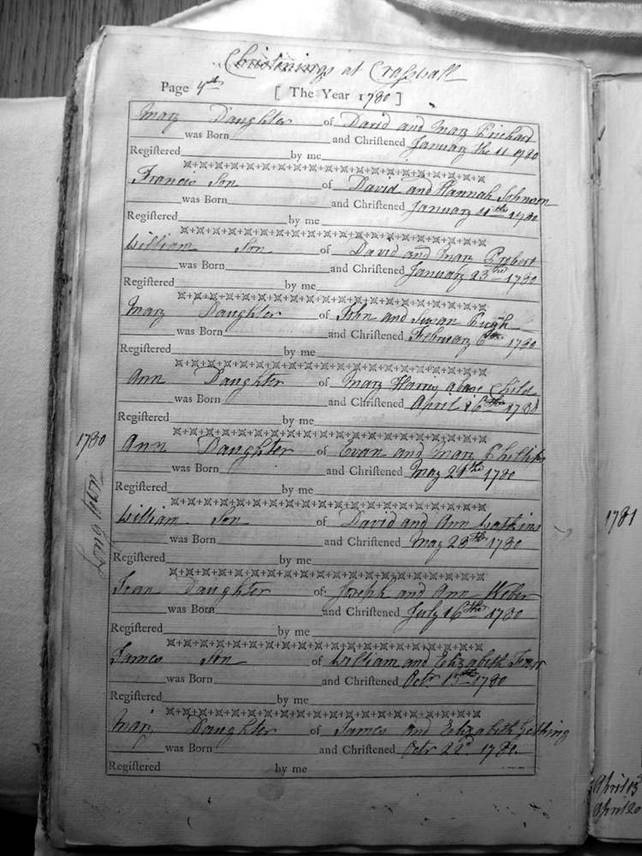 Christnings at Craswall
Page 4th [ The Year 1780 ]
Mary Daughter of David and Mary Prichard
was Born and Chriſtened January the 11 1780
Regiſtered by me
Francis Son of David and Hannah Johnson
was Born and Chriſtened January 1780
Regiſtered by me
William Son of David and Mary Probert
was Born and Chriſtened January 23rd 1780
Regiſtered by me
Mary Daughter of John and Susan Pugh
was Born and Chriſtened February 6th 1780
Regiſtered by me
Ann Daughter of Mary Harris a base Child
was Born and Chriſtened April 16th 1780
Regiſtered by me
1780
Ann Daughter of Evan and Mary
was Born and Chriſtened May 21th 1780
Regiſtered by me
William Son of David and Ann Watkins
was Born and Chriſtened May 28th 1780
Regiſtered by me
Joan Daughter of Joseph and Ann
was Born and Chriſtened July 16th 1780
Regiſtered by me
James Son of William and Elizabeth
was Born and Chriſtened Octr 15th 1780
Regiſtered by me
Mary Daughter of James and Elizabeth
was Born and Chriſtened Octr 22d 1780.
Regiſtered by me
1781
April 13
April 20